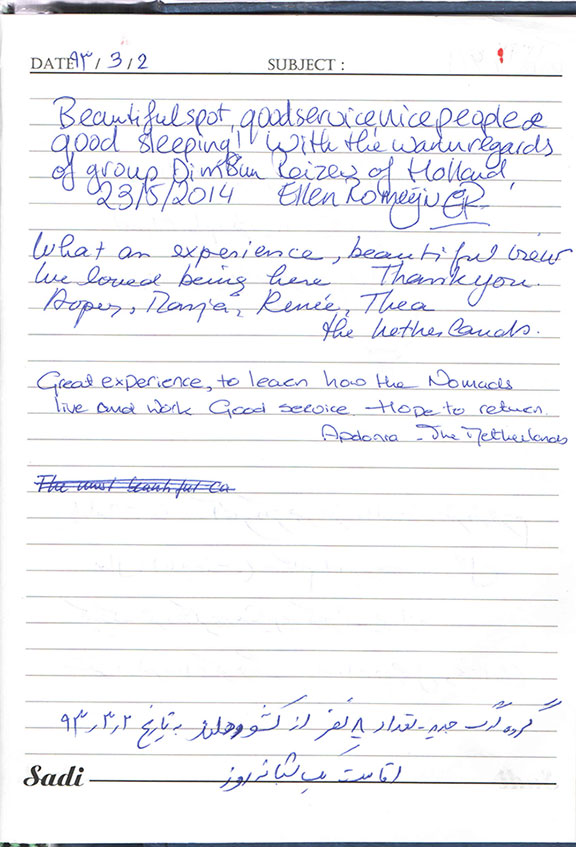 DATE ۹۳ / 3 / 2 SUBJECT :
Beautiful spot, good service, nice people &
good sleeping! With the warm regards
of group Dimsum Reizen of Holland,
23/5/2014 Ellen Romeijn ER
What an experience, beautiful view
We loved being here Thank you.
Ranja, Renée, Thea
the Netherlands.
Great experience, to learn how the Nomads
live and work Good service. Hope to return.
Apdonia - The Netherlands
The most beautiful Ca
گروه گردشگری تعداد ۸ نفر از کشور هلند به تاریخ ۹۳٫۳٫۲
اقامت یک شبانه روز
Sadi